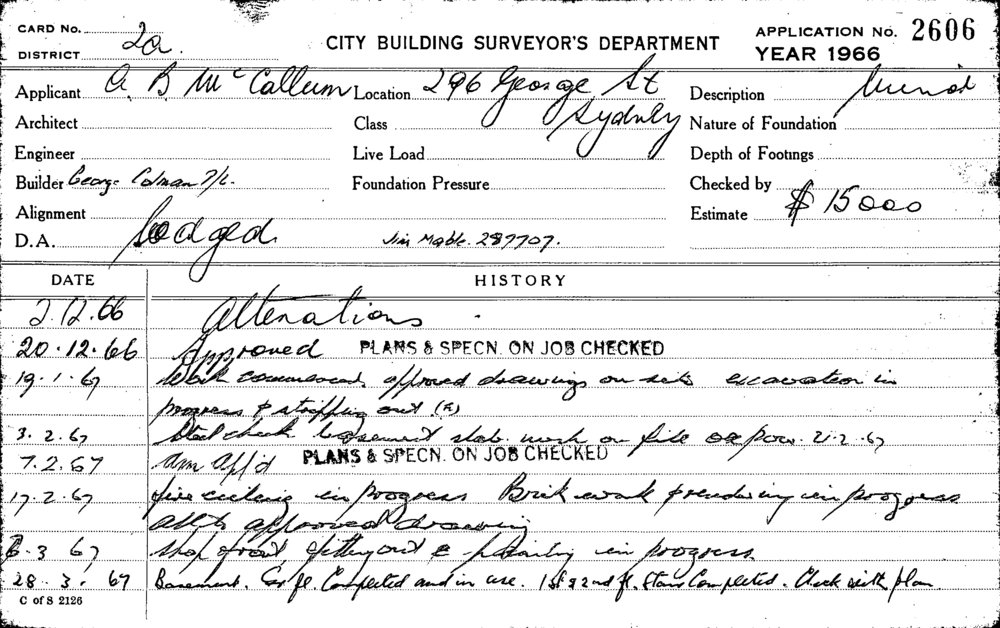 CARD No. 2a. CITY BUILDING SURVEYOR'S DEPARTMENT APPLICATION No. 2606
DISTRICT YEAR 1966
Applicant A B McCallum Location 296 George St Sydney Description
Architect Class Nature of Foundation
Engineer Live Load Depth of Footings
Builder George Colman P/L. Foundation Pressure Checked by
Alignment Estimate $ 15000
D.A. Lodged Jim Mable. 287707.
DATE HISTORY
2.12.66 Alterations
20.12.66 Approved PLANS & SPECN. ON JOB CHECKED
19.1.67 Work commenced, approved drawings on site excavation in
progress & stripping out
3.2.67 Steel check basement slab. work on file
7.2.67 Am app'd PLANS & SPECN. ON JOB CHECKED
17.2.67 fire ceilings in progress Brick work & rendering in progress
all to approved drawing
6.3 67 shop front fitting out & painting in progress.
28.3.67 Basement. Gr fl. Completed and in use. 1st & 2nd fl. Stairs Completed. Check with plan
C of S 2126